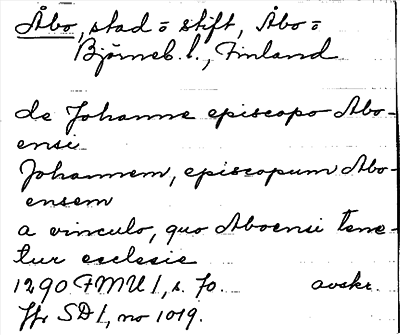 Åbo, stad = stift, Åbo =
Björneb. l., Finland
de Johanne episcopo Abo-
ensi
Johannem, episcopum Abo-
ensem
a vinculo, quo Aboensi tene-
tur ecclesie
1290 FMU 1, s. 70. avskr.
Jfr SD 1, no 1019.